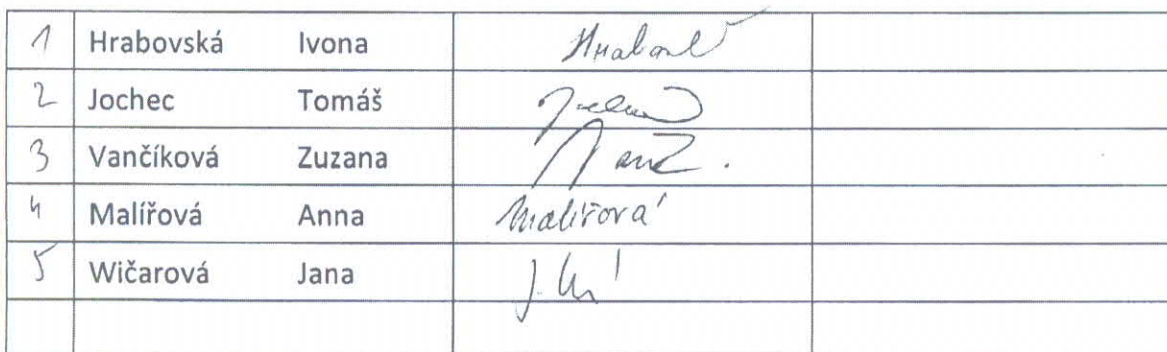 1 Hrabovská Ivona
2 Jochec Tomáš
3 Vančíková Zuzana
4 Malířová Anna Malířová
5 Wičarová Jana